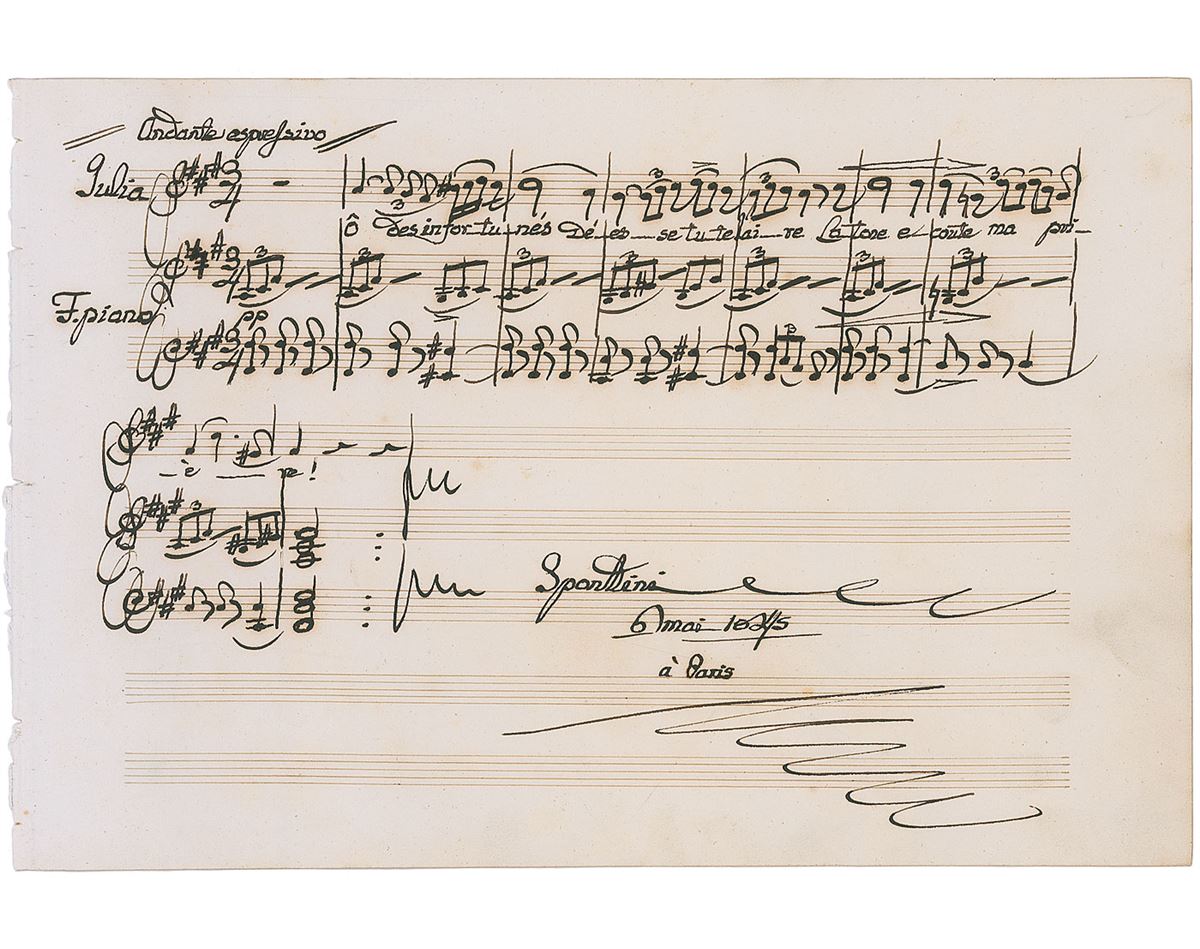 Andante espressivo
Julia
Ô des infor-tu-nés Dé-es-se tu-te-lai-re Latone e-coute ma pri-
F.piano
pp
-è-re!
Spontini
6 mai
à Paris